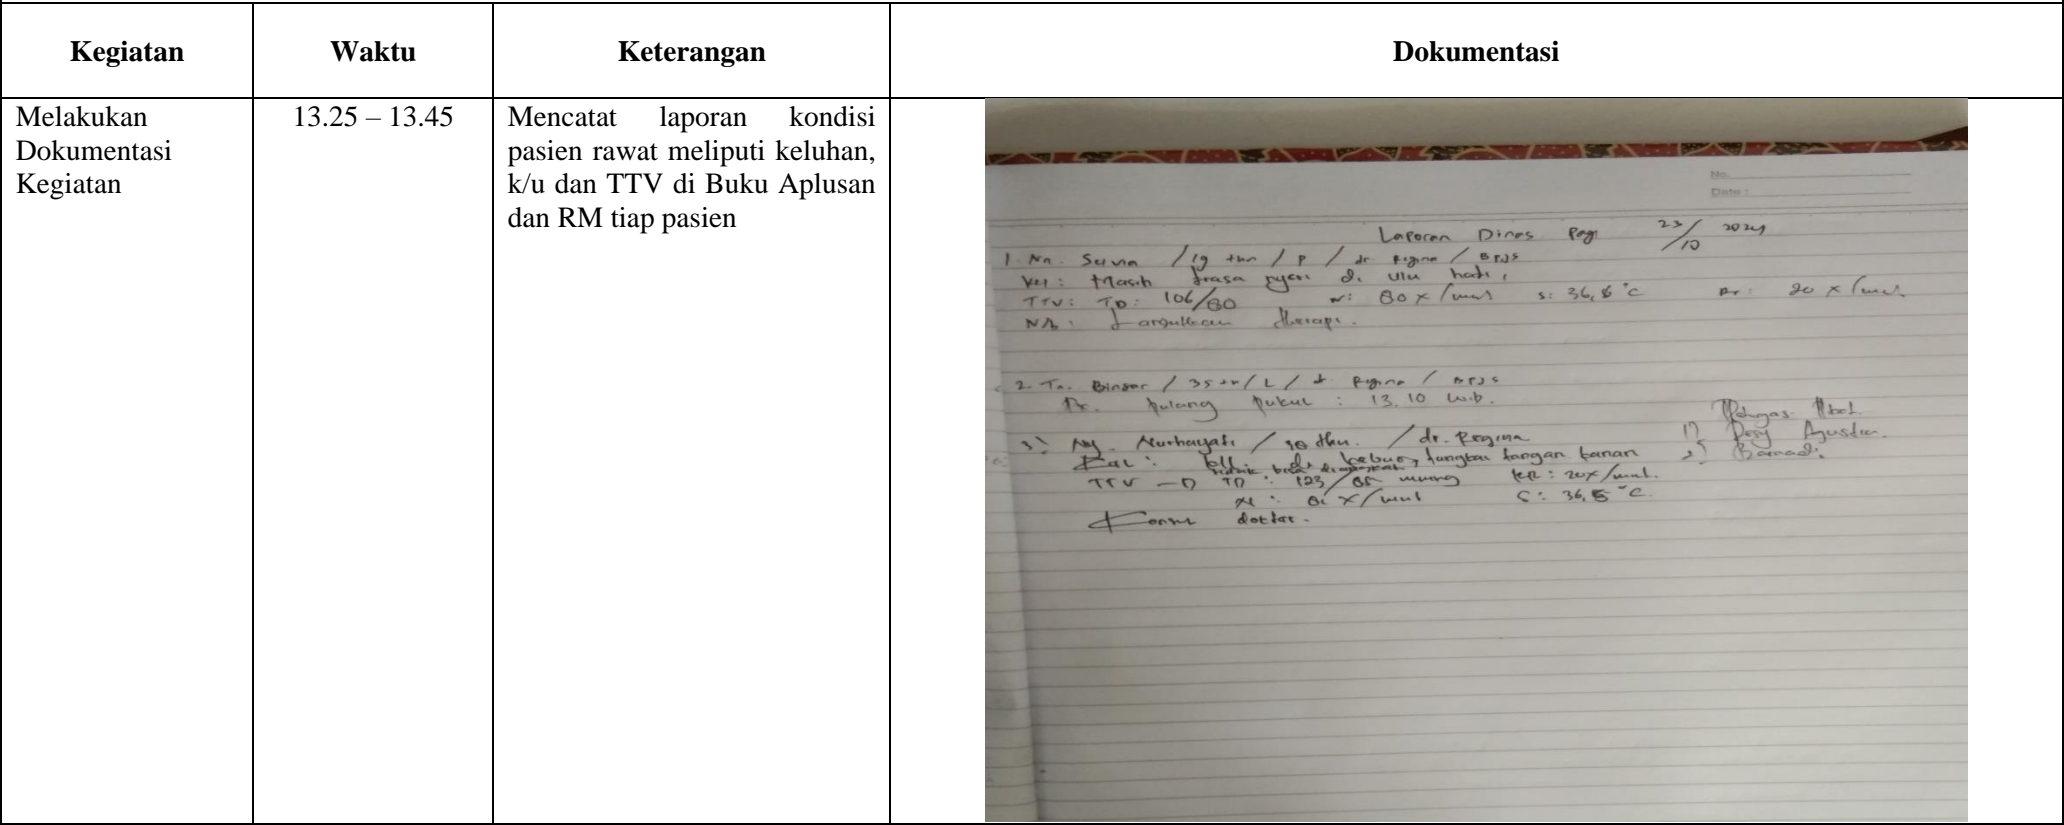 Kegiatan
Waktu
Keterangan
Dokumentasi
Melakukan
Dokumentasi
Kegiatan
13.25 – 13.45
Mencatat laporan kondisi
pasien rawat meliputi keluhan,
k/u dan TTV di Buku Aplusan
dan RM tiap pasien
No.
Date :
Laporan Dinas Pagi 23/10 2024
1. Nn. / 19 thn / P / dr Regina / BPJS
Kel : Masih trasa nyeri di ulu hati,
TTV : TD : 106/80 N : 80 x/mnt S : 36,6 °C Rr : 20 x/mnt
N/b : Lanjutkan therapi.
2. Tn. Binsar / 35 th / L / dr Regina / BPJS
Ps. pulang pukul : 13.10 wib.
3. Ny. Nurhayati / thn. / dr. Regina
Kel : di tangan kanan
tidak bisa
TTV TD : 123/ mmHg RR : 20x/mnt.
N : x/mnt S : 36,5 °C.
Konsul dokter.
Petugas
1) Desy Agustin
2)